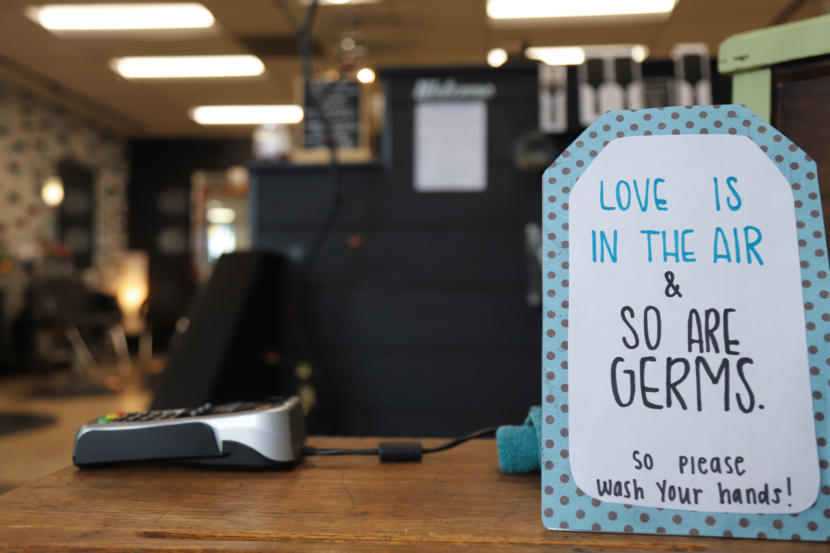 Welcome
LOVE IS
IN THE AIR
&
SO ARE
GERMS.
So please
wash your hands!